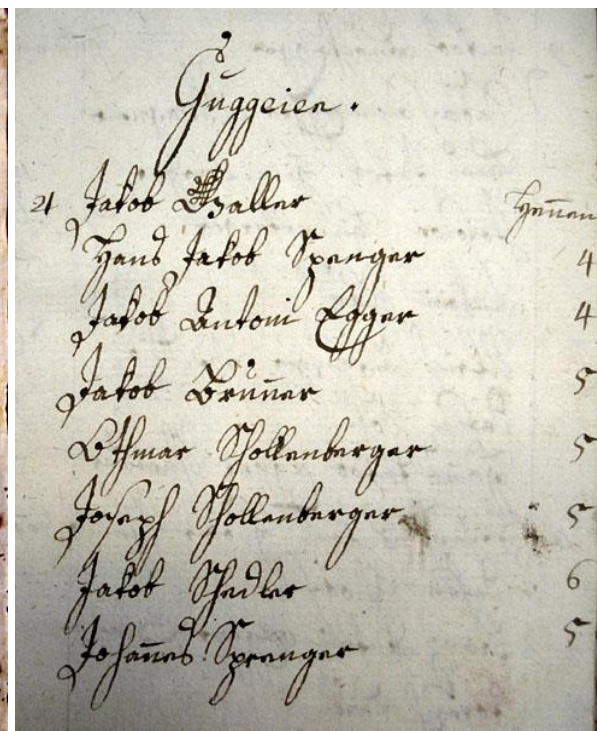 Guggeien.
21 Jakob Galler Hennen
Hans Jakob Spenger 4
Jakob Antoni Egger 4
Jakob Brunner 5
Othmar Schollenberger 5
Joseph Schollenberger 5
Jakob Schedler 6
Johannes Sprenger 5